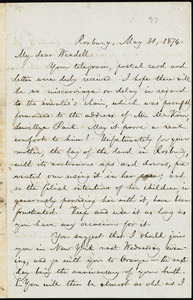 Roxbury, May 31, 1874.
My dear Wendell
Your telegram, postal card and
letter were duly received. I hope there will
be no miscarriage or delay in regard
to the chair, which was promptly
forwarded to the address of Mr. McKim,
Llewellyn Park. May it prove a real
comfort to him! Unfortunately for you
mother, the lay of the land in Roxbury,
with its continuous ups and downs, pre-
vented our using it in her case; and
so the filial intentions of her children, so
generously met with it, have been
frustrated. Keep and use it as long as
you have any occasion for it.
You suggest that I should join
you in New York next Wednesday even-
ing, and go with you to Orange — the next
day being the anniversary of your birth.
You will then be almost as old as I